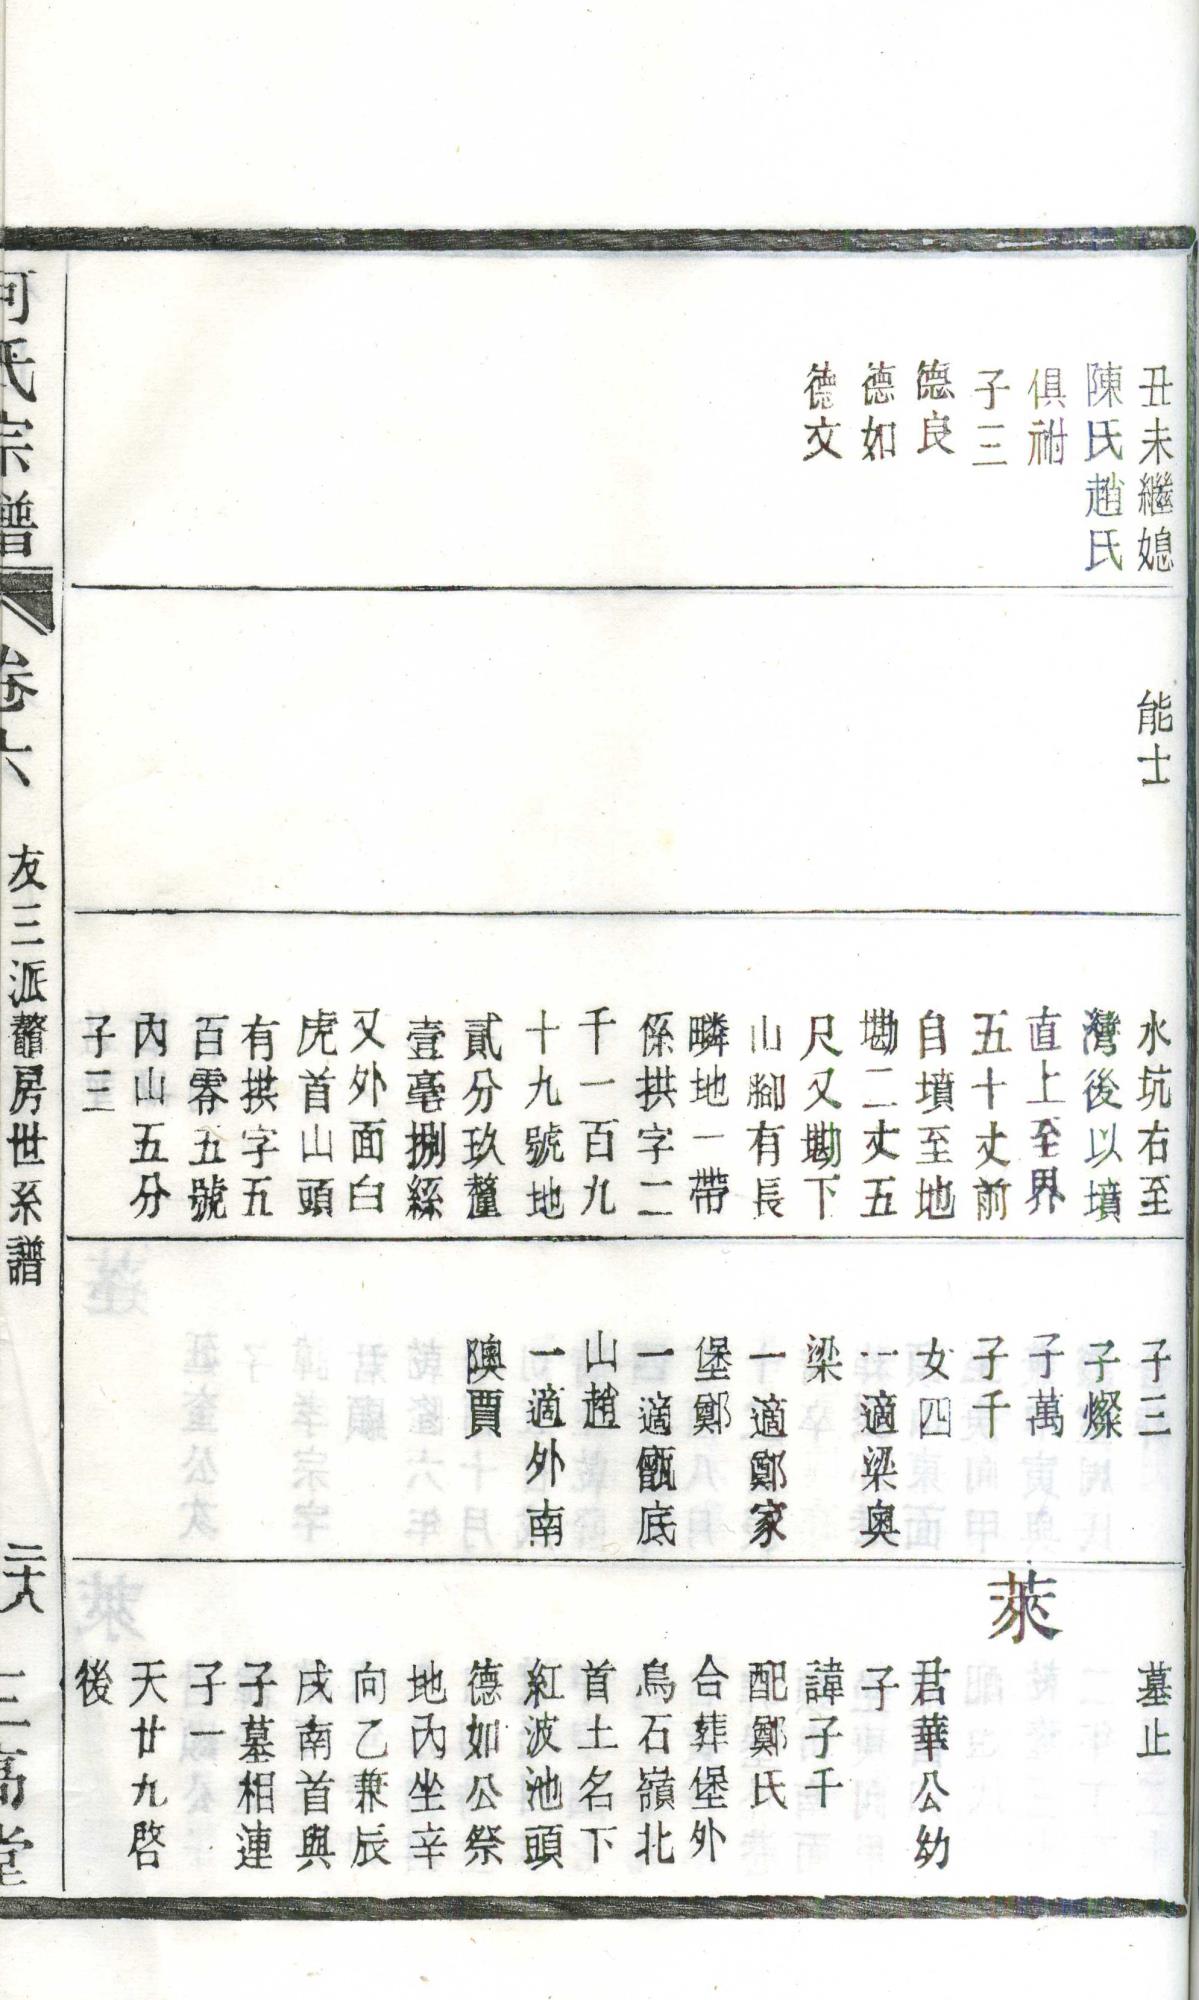 丑未繼媳
陳氏趙氏
俱祔
子三
德良
德如
德文
能士
水坑右至
灣後以墳
直上至界
五十丈前
自墳至地
墈二丈五
尺又墈下
山腳有長
疄地一帶
係拱字二
千一百九
十九號地
貳分玖釐
壹毫捌絲
又外面白
虎首山頭
有拱字五
百零五號
內山五分
子三
子三
子燦
子萬
子千
女四
一適梁奥
梁
一適鄭家
堡鄭
一適甑底
山趙
一適外南
隩賈
墓止
萊
君華公幼
子
諱子千
配鄭氏
合葬堡外
烏石嶺北
首土名下
紅波池頭
德如公祭
地內坐辛
向乙兼辰
戌南首與
子墓相連
子一
天廿九啓
後
何氏宗譜
卷六
友三派鼇房世系譜
三高堂